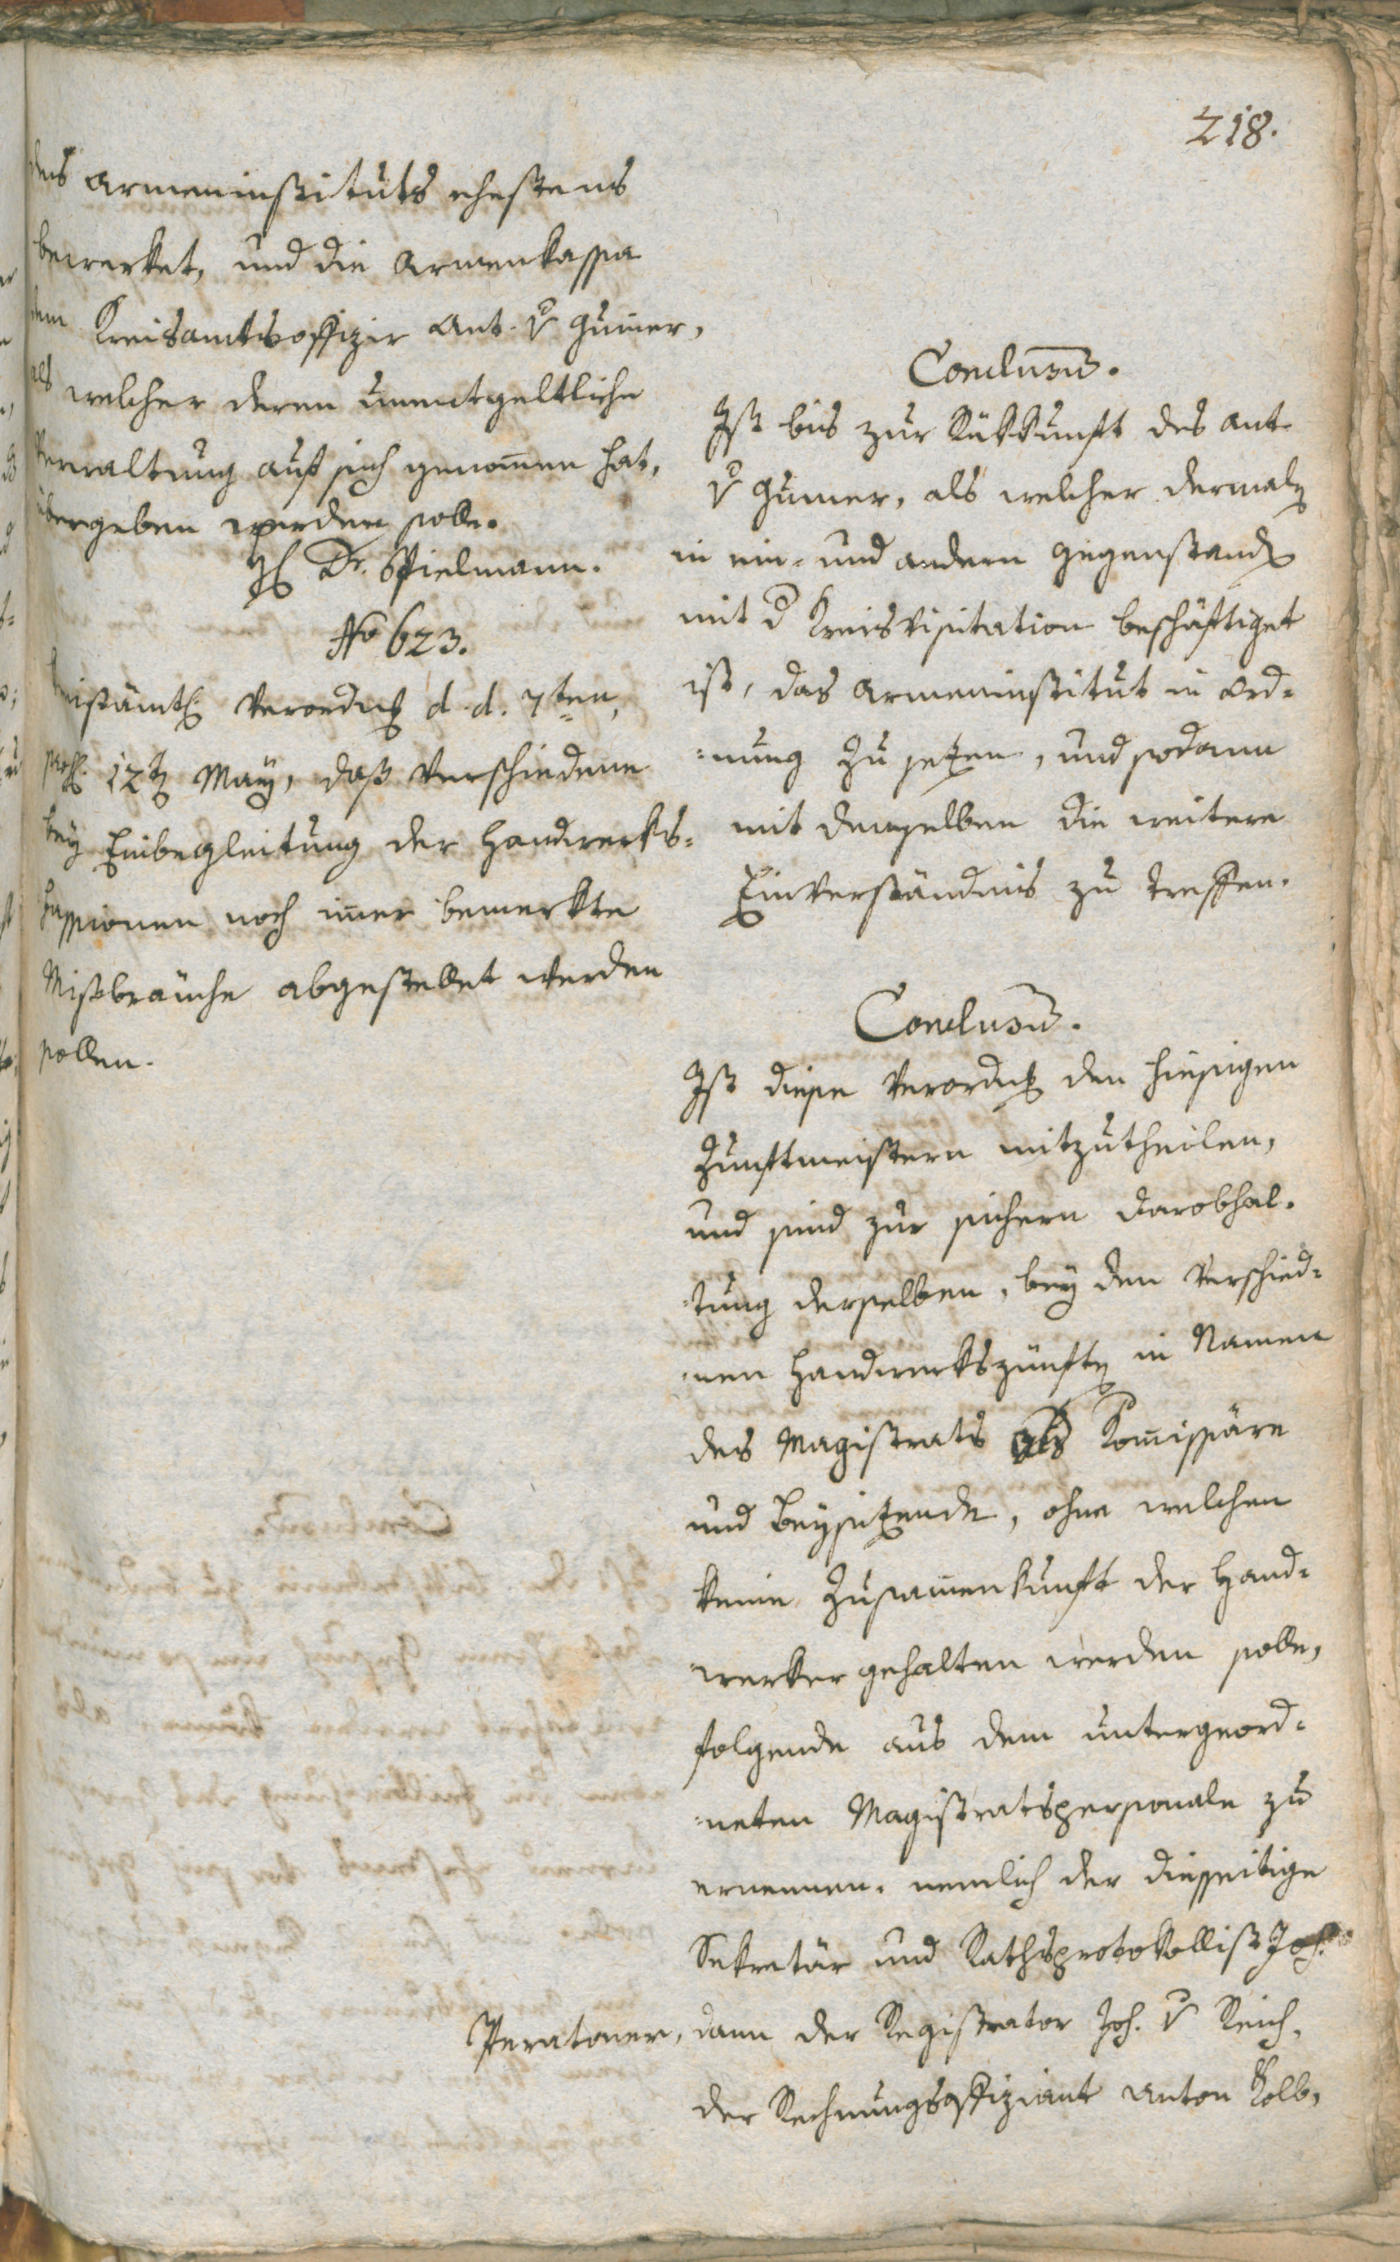 218.
des Armeninstituts ehestens
bewerket, und die Armenkassa
dem Kreisamtsoffizier Ant. v Gumer,
als welcher deren unentgeltliche
Verwaltung auf sich genomen hat,
übergeben werden solle.
H Dr. Spielmann.
No 623.
Kreisämtl. Verordng d. d. 7ten,
prs. 12t May, daß verschiedene
bey Einbegleitung der Handwerks-
fassionen noch imer bemerkte
Mißbräuche abgestellet werden
sollen.
Conclusum.
Ist bis zur Rükkunft des Ant.
v Gumer, als welcher dermaln
in ein- und andern Gegenstand
mit d Kreisvisitation beschäftiget
ist, das Armeninstitut in Ord-
-nung zu setzen, und sodann
mit demselben die weitere
Einverständnis zu treffen.
Conclusum.
Ist diese Verordng den hiesigen
Zunftmeistern mitzutheilen,
und sind zur sichern Darobhal-
-tung derselben, bey den verschied-
-nen Handwerkszünften in Namen
des Magistrats als Komissäre
und Beysitzende, ohne welchen
keine Zusamenkunft der Hand-
werker gehalten werden solle,
folgende aus dem untergeord-
-neten Magistratspersonale zu
ernennen. nemlich der diesseitige
Sekretär und Rathsprotokollist Jos.
Peratoner, dann der Registrator Joh. v Reich,
der Rechnungsoffiziant Anton Kolb,